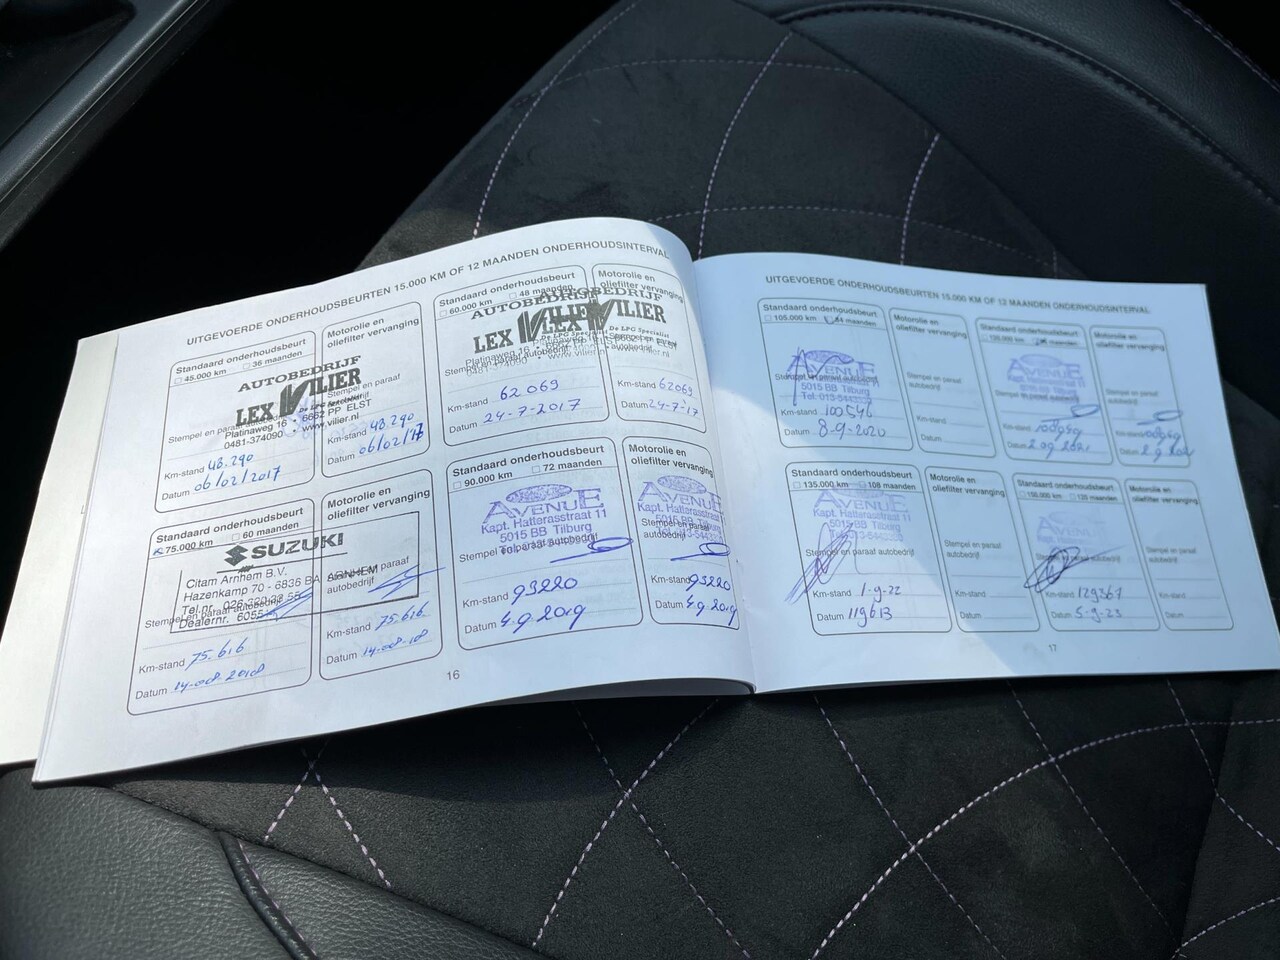 UITGEVOERDE ONDERHOUDSBEURTEN 15.000 KM OF 12 MAANDEN ONDERHOUDSINTERVAL
Standaard onderhoudsbeurt
45.000 km 36 maanden
AUTOBEDRIJF
LEX VILIER
De LPG Specialist
Stempel en paraaf autobedrijf
Platinaweg 16 • 6662 PP ELST
0481-374090 • www.vilier.nl
Km-stand 48.290
Datum 06/02/2017
Motorolie en
oliefilter vervanging
Stempel en paraaf
Km-stand 48.290
Datum 06/02/17
Standaard onderhoudsbeurt
60.000 km 48 maanden
AUTOBEDRIJF
LEX VILIER
Platinaweg 16
Stempel en paraaf autobedrijf
0481-374090
Km-stand 62069
Datum 24-7-2017
Motorolie en
oliefilter vervanging
VILIER
De LPG Specialist
Stempel en paraaf
autobedrijf
www.vilier.nl
Km-stand 62069
Datum 24-7-17
Standaard onderhoudsbeurt
75.000 km 60 maanden
SUZUKI
Citam Arnhem B.V.
Hazenkamp 70 - 6836 BA ARNHEM
Tel.nr.
Stempel en paraaf autobedrijf
Dealernr.
Km-stand 75.616
Datum 14-08-2018
Motorolie en
oliefilter vervanging
Stempel en paraaf
autobedrijf
Km-stand 75.616
Datum 14-08-18
Standaard onderhoudsbeurt
90.000 km 72 maanden
AVENUE
Kapt. Hatterasstraat 11
5015 BB Tilburg
Stempel en paraaf autobedrijf
Km-stand 93220
Datum 4.9.2019
Motorolie en
oliefilter vervanging
AVENUE
Kapt. Hatterasstraat 11
5015 BB Tilburg
Stempel en paraaf
autobedrijf
Km-stand 93220
Datum 4.9.2019
16
UITGEVOERDE ONDERHOUDSBEURTEN 15.000 KM OF 12 MAANDEN ONDERHOUDSINTERVAL
Standaard onderhoudsbeurt
105.000 km 84 maanden
AVENUE
Stempel en paraaf autobedrijf
5015 BB Tilburg
Km-stand 100546
Datum 8-9-2020
Motorolie en
oliefilter vervanging
Stempel en paraaf
autobedrijf
Km-stand
Datum
Standaard onderhoudsbeurt
120.000 km maanden
AVENUE
Kapt. Hatterasstraat 11
Stempel en paraaf autobedrijf
Km-stand
Datum 2 09 2021
Motorolie en
oliefilter vervanging
Stempel en paraaf
autobedrijf
Km-stand
Datum
Standaard onderhoudsbeurt
135.000 km 108 maanden
AVENUE
Kapt. Hatterasstraat 11
5015 BB Tilburg
Stempel en paraaf autobedrijf
Km-stand 1-9-22
Datum 119613
Motorolie en
oliefilter vervanging
Stempel en paraaf
autobedrijf
Km-stand
Datum
Standaard onderhoudsbeurt
150.000 km 120 maanden
AVENUE
Stempel en paraaf autobedrijf
Km-stand 129367
Datum 5-9-23
Motorolie en
oliefilter vervanging
Stempel en paraaf
autobedrijf
Km-stand
Datum
17